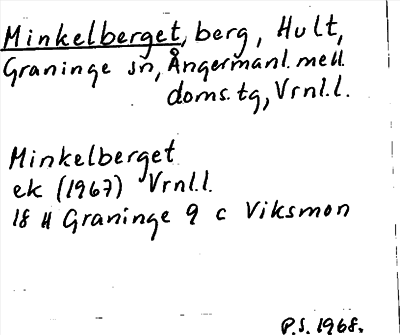 Minkelberget, berg, Hult,
Graninge sn, Ångermanl. mell.
doms. tg, Vrnl.l.
Minkelberget
ek (1967) Vrnl.l.
18 H Graninge 9 c Viksmon
P.S. 1968.